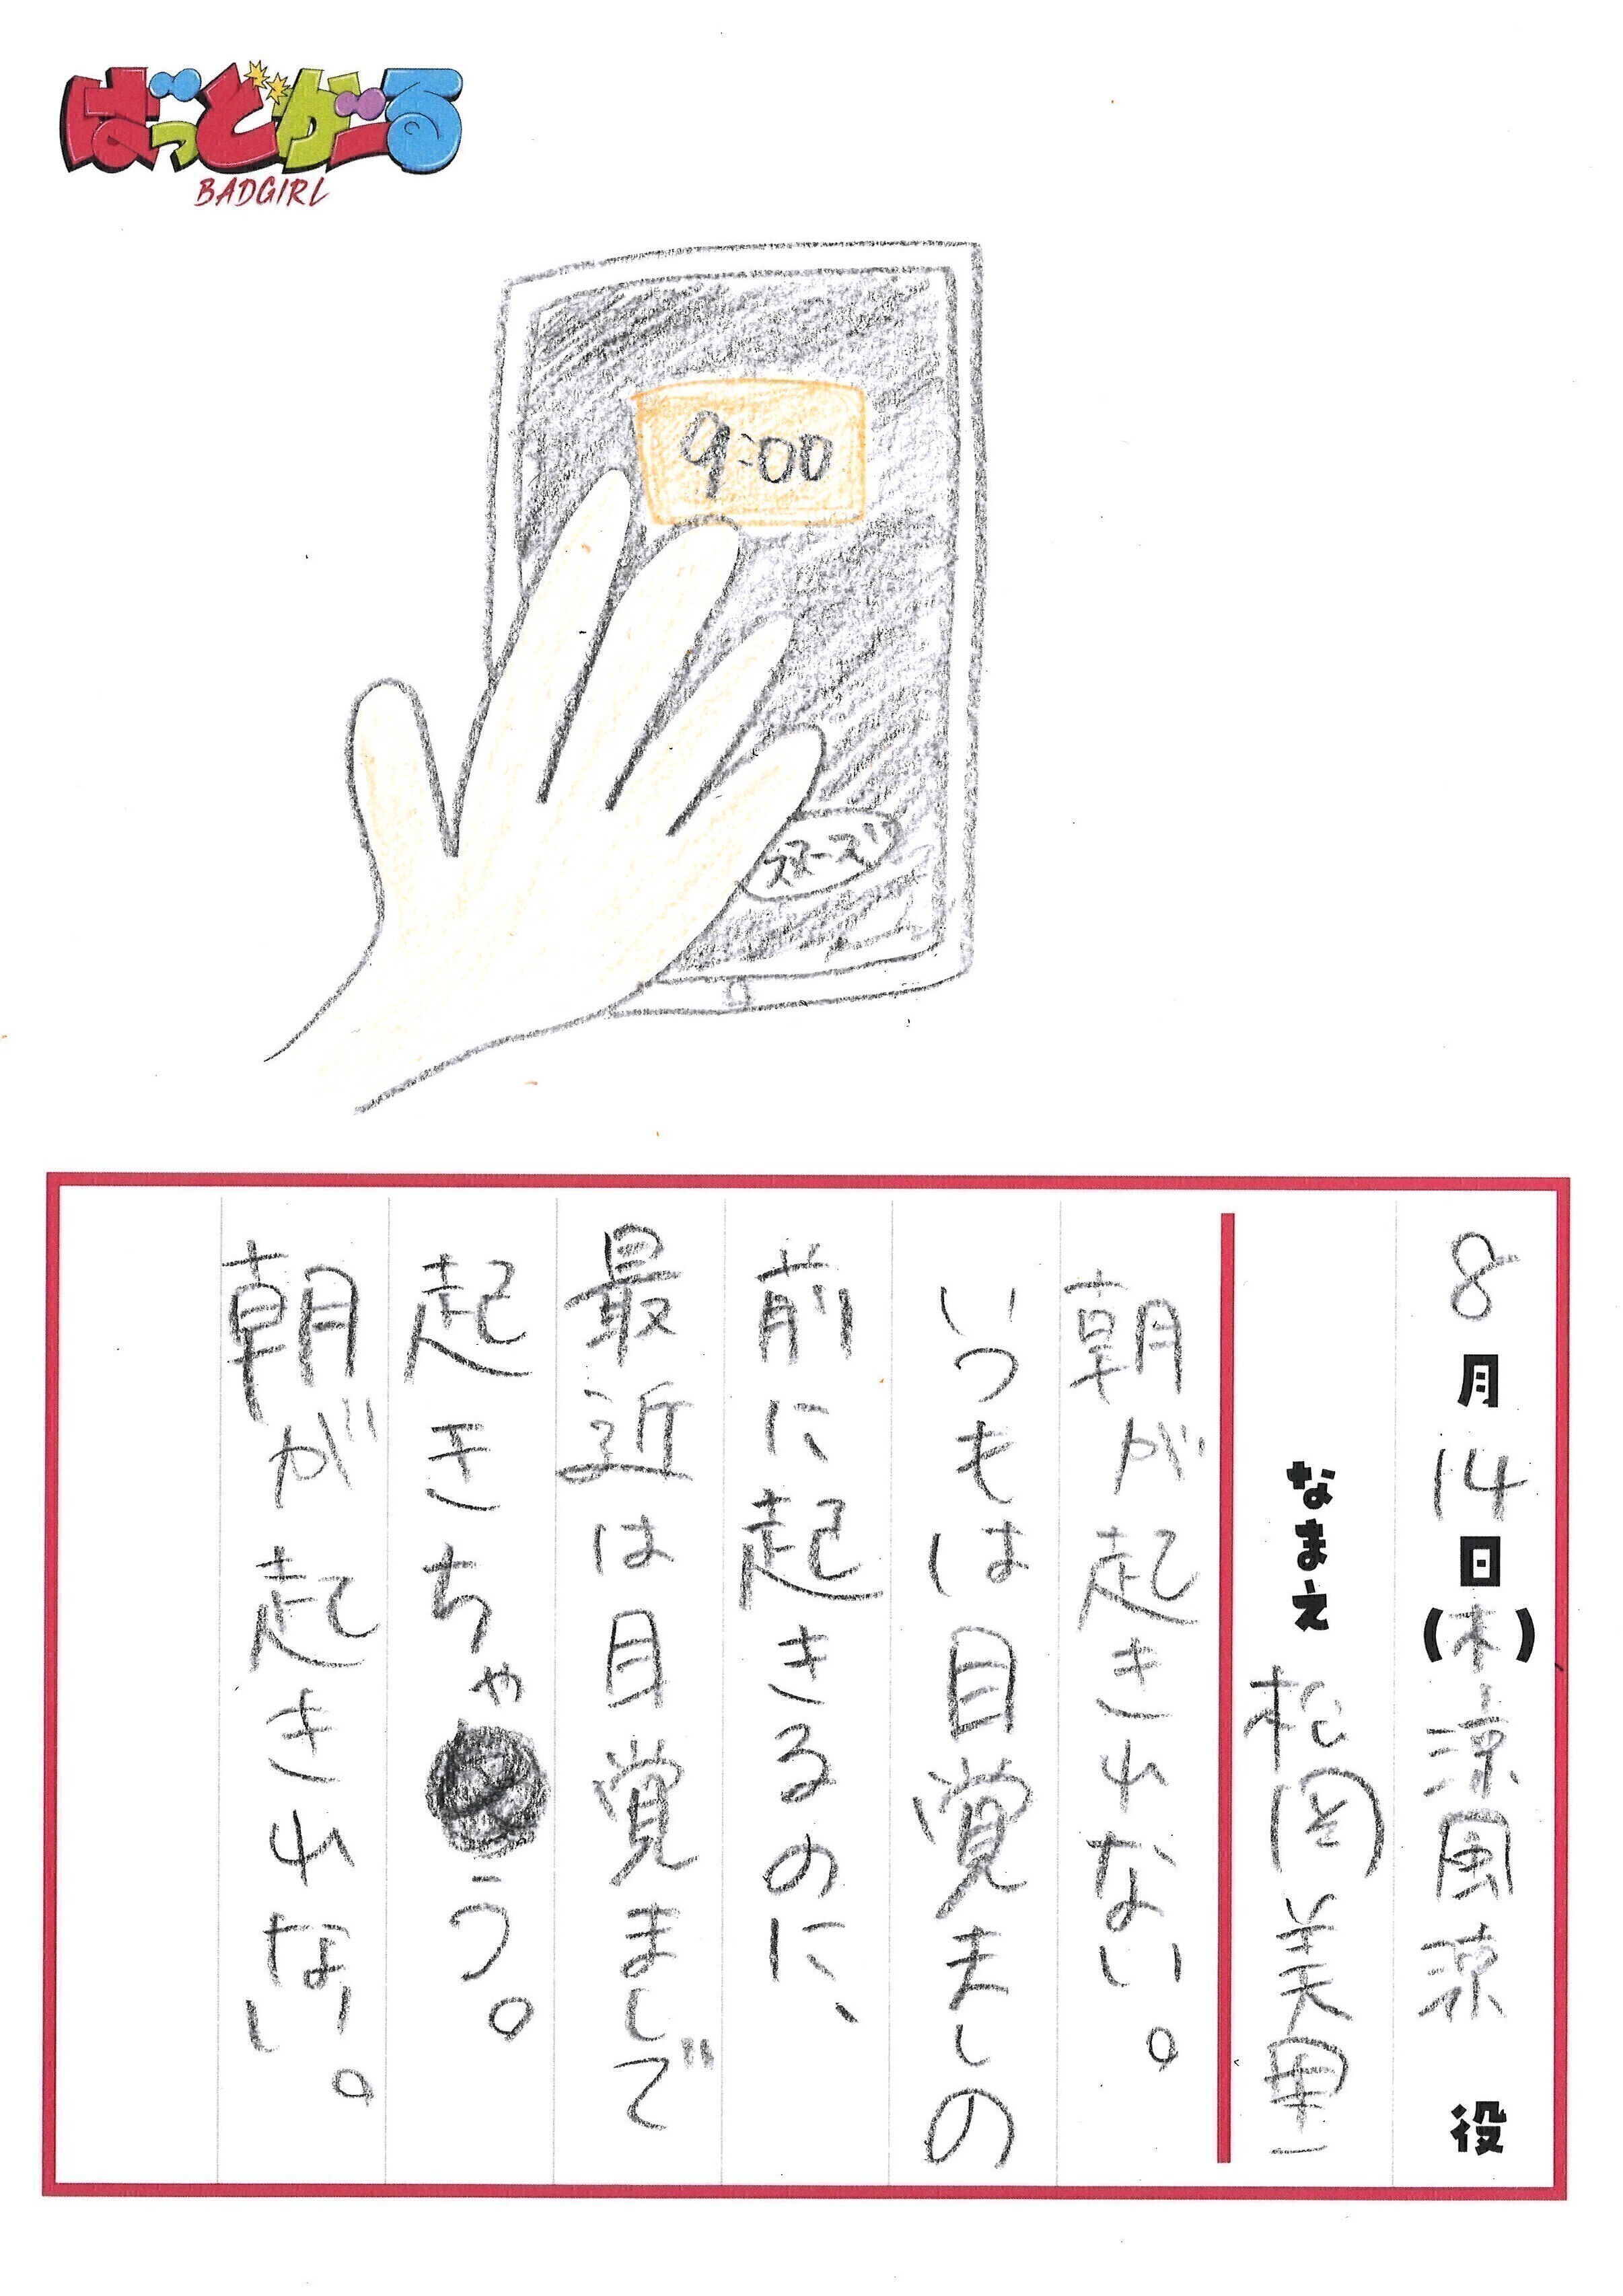 ばっどがーる
BADGIRL
9:00
スヌーズ
8月14日(木)涼風涼 役
なまえ 松岡美里
朝が起きれない。
いつもは目覚ましの
前に起きるのに、
最近は目覚ましで
起きちゃう。
朝が起きれない。